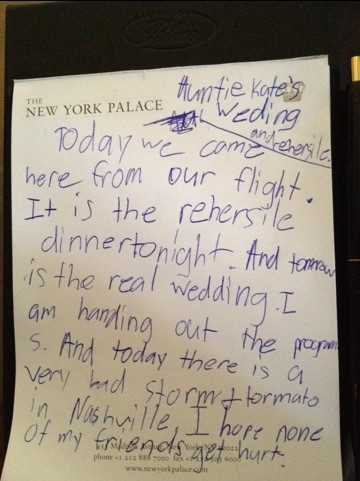 Auntie Kate's
THE
NEW YORK PALACE
Weding
and rehersile.
Today we came
here from our flight.
It is the rehersile
dinner tonight. And tomrrow
is the real wedding. I
am handing out the program
s. And today there is a
very bad storm + tornato
in Nashville, I hope none
of my friends get hurt.
phone +1 212 888 7000 fax
www.newyorkpalace.com